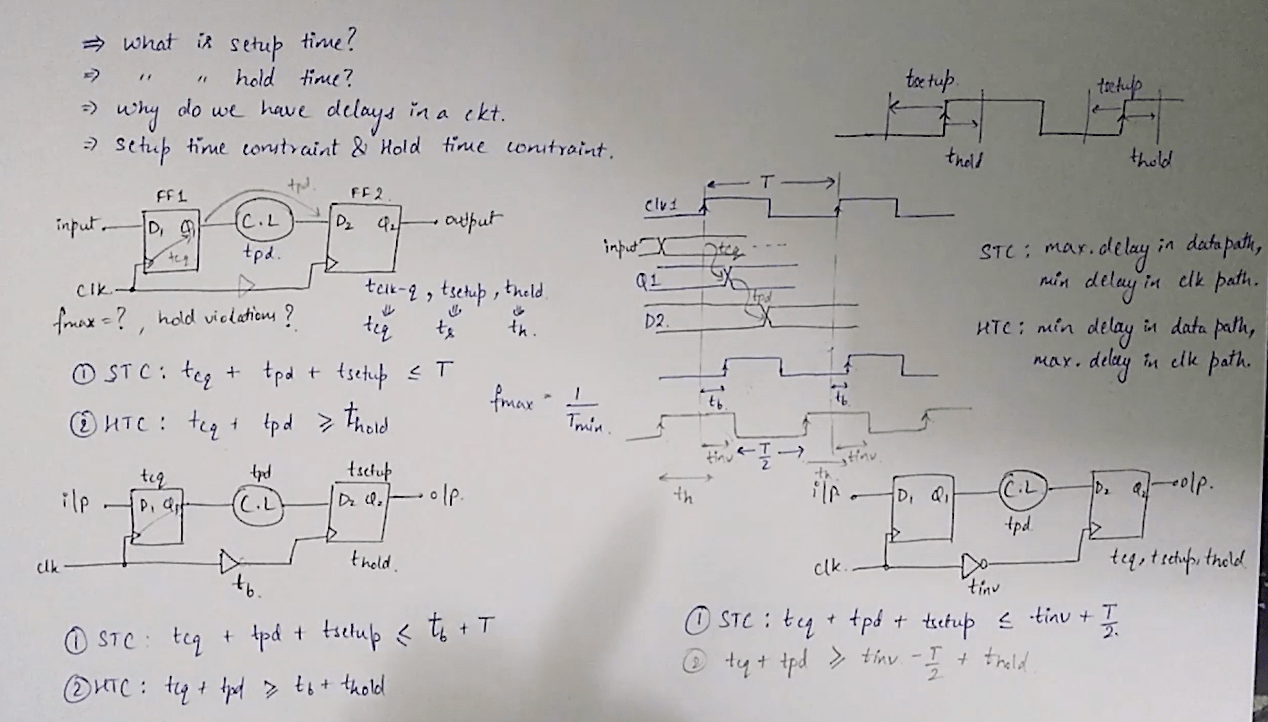 ⇒ what is setup time?
⇒ " " hold time?
⇒ why do we have delays in a ckt.
⇒ setup time constraint & Hold time constraint.
tsetup. tsetup
thold thold
FF1 tpd. FF2.
input. D1 Q C.L D2 Q2 output
tcq tpd.
clk
tclk-q, tsetup, thold
⇓ ⇓ ⇓
tcq ts th.
fmax = ?, hold violations?
① STC: tcq + tpd + tsetup ≤ T
② HTC: tcq + tpd ≥ thold
fmax = 1/Tmin.
T
clk1
input tcq ----
Q1
tpd
D2.
tb tb
tinv T/2 tinv
th th
STC: max. delay in data path,
min delay in clk path.
HTC: min delay in data path,
max. delay in clk path.
tcq tpd tsetup
i/p D1 Q1 C.L D2 Q2 o/p.
clk tb. thold.
① STC: tcq + tpd + tsetup ≤ tb + T
② HTC: tcq + tpd ≥ tb + thold
i/p D1 Q1 C.L D2 Q2 o/p.
tpd
clk. tinv tcq, tsetup, thold
① STC: tcq + tpd + tsetup ≤ tinv + T/2.
② tcq + tpd ≥ tinv - T/2 + thold